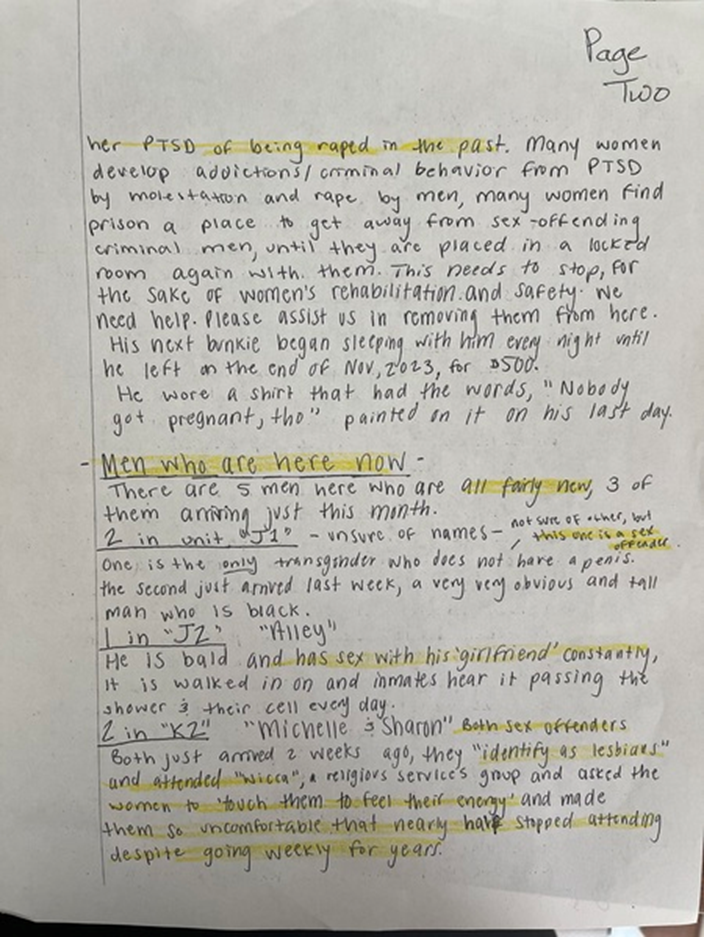 Page
Two
her PTSD of being raped in the past. Many women
develop addictions/criminal behavior from PTSD
by molestation and rape by men, many women find
prison a place to get away from sex-offending
criminal men, until they are placed in a locked
room again with them. This needs to stop, for
the sake of women's rehabilitation and safety. We
need help. Please assist us in removing them from here.
His next bunkie began sleeping with him every night until
he left on the end of Nov, 2023, for $500.
He wore a shirt that had the words, "Nobody
got pregnant, tho" painted on it on his last day.
- Men who are here now -
There are 5 men here who are all fairly new, 3 of
them arriving just this month.
2 in unit "J1" - unsure of names - not sure of other, but
this one is a sex
offender.
One is the only transgender who does not have a penis.
the second just arrived last week, a very very obvious and tall
man who is black.
1 in "J2" "Alley"
He is bald and has sex with his 'girlfriend' constantly,
it is walked in on and inmates hear it passing the
shower & their cell every day.
2 in "K2" "Michelle & Sharon" Both sex offenders
Both just arrived 2 weeks ago, they "identify as lesbians"
and attended "Wicca", a religious service's group and asked the
women to 'touch them to feel their energy' and made
them so uncomfortable that nearly half stopped attending
despite going weekly for years.